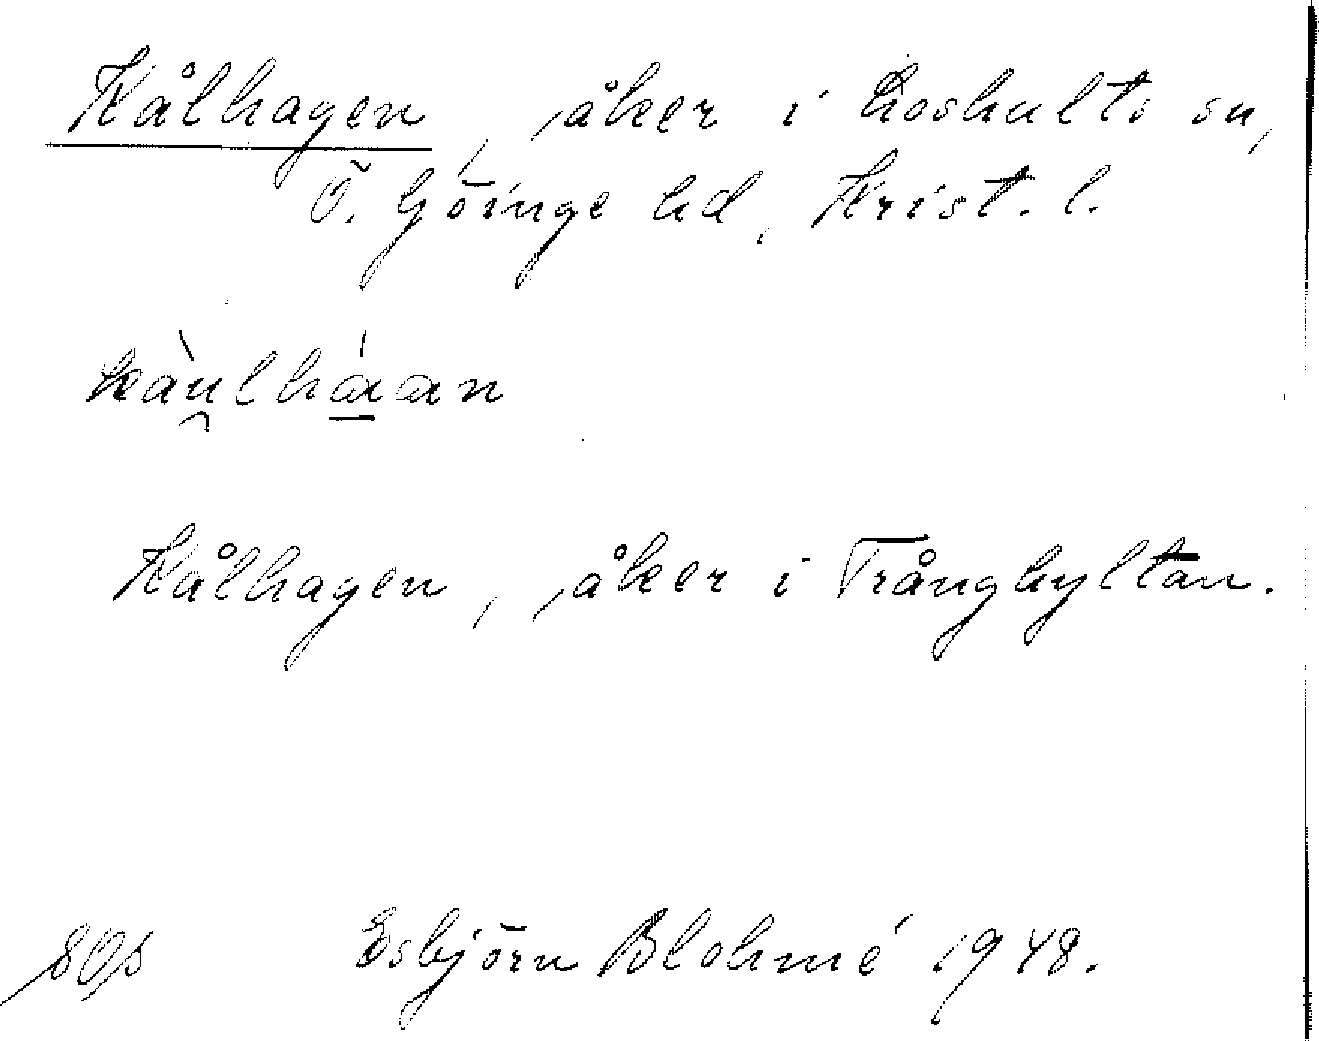 Kålhagen, åker i Loshults sn,
Ö. Göinge hd, Krist. l.
kàu̯lhá̱an
Kålhagen, åker i Trångbyltan.
Esbjörn Blohmé 1948.